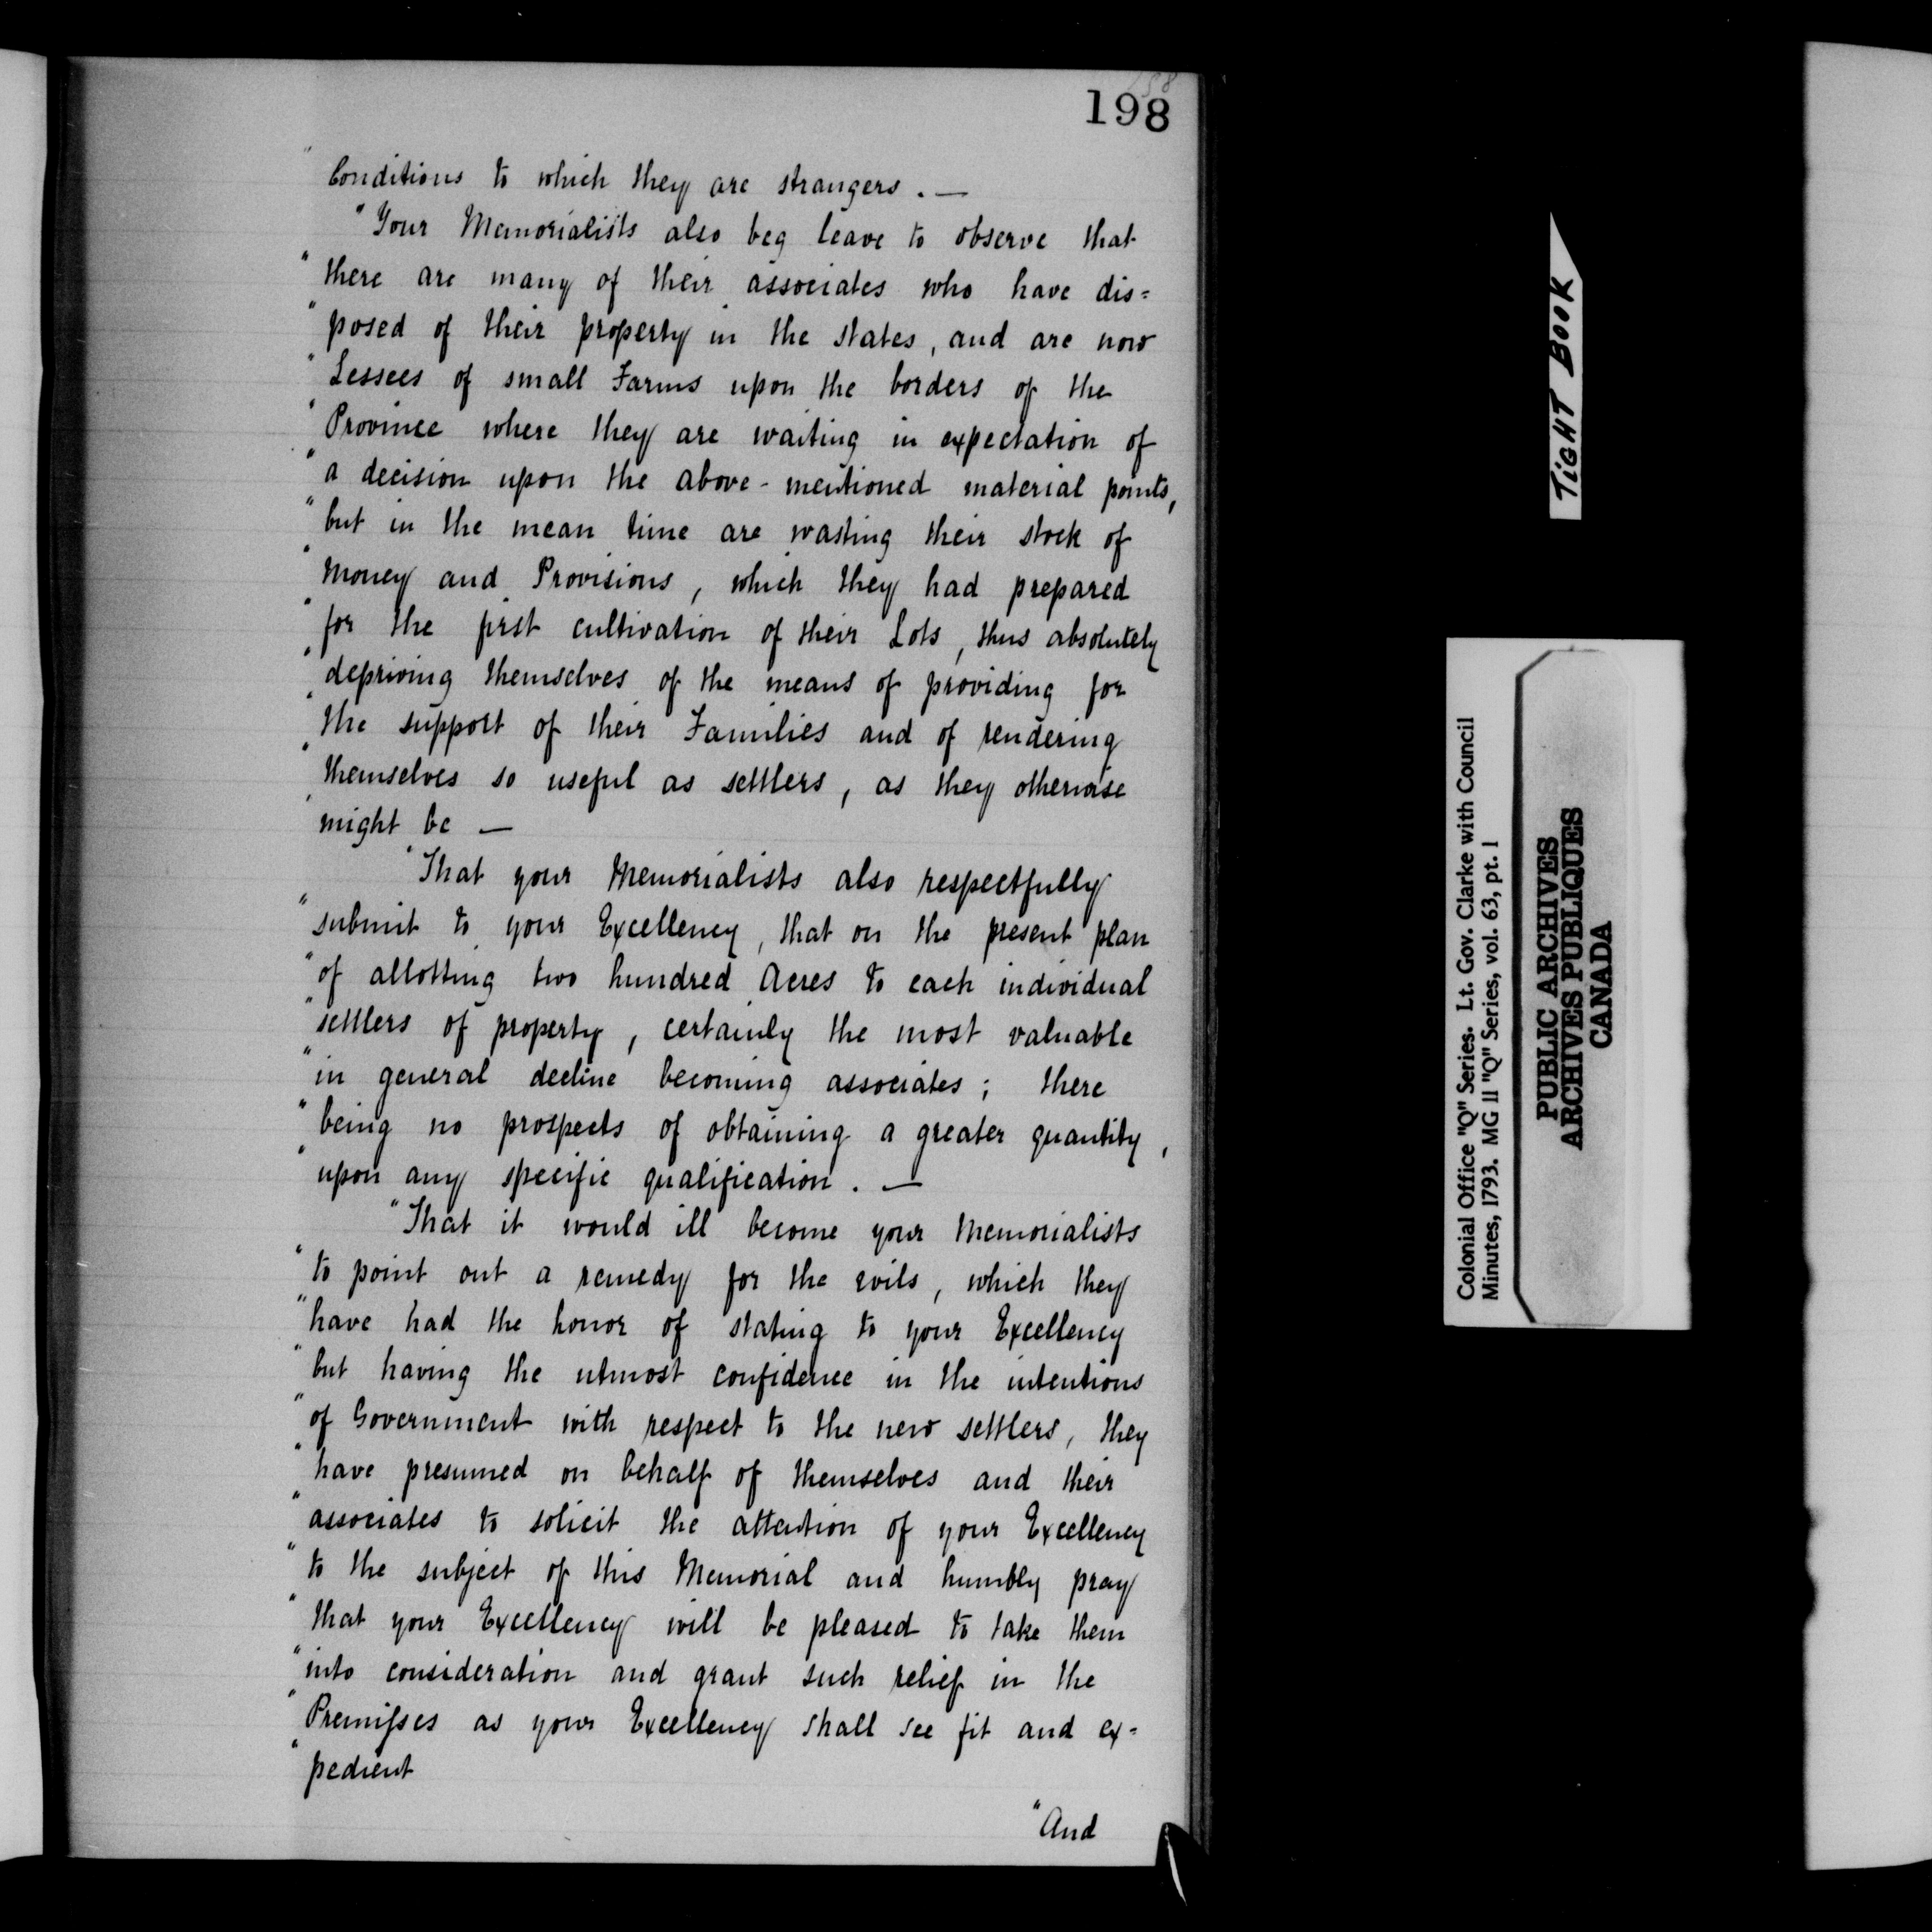 198
" Conditions to which they are strangers. —
"Your Memorialists also beg leave to observe that
" there are many of their associates who have dis=
" posed of their property in the states, and are now
" Lessees of small Farms upon the borders of the
" Province where they are waiting in expectation of
" a decision upon the above-mentioned material points,
" but in the mean time are wasting their stock of
" Money and Provisions, which they had prepared
" for the first cultivation of their Lots, thus absolutely
" depriving themselves of the means of providing for
" the support of their Families and of rendering
" themselves so useful as settlers, as they otherwise
" might be —
"That your Memorialists also respectfully
" submit to your Excellency, that on the present plan
" of allotting two hundred Acres to each individual
" settlers of property, certainly the most valuable
" in general decline becoming associates; there
" being no prospects of obtaining a greater quantity,
" upon any specific qualification. —
"That it would ill become your Memorialists
" to point out a remedy for the evils, which they
" have had the honor of stating to your Excellency
" but having the utmost confidence in the intentions
" of Government with respect to the new settlers, they
" have presumed on behalf of themselves and their
" associates to solicit the attention of your Excellency
" to the subject of this Memorial and humbly pray
" that your Excellency will be pleased to take them
" into consideration and grant such relief in the
" Premifses as your Excellency shall see fit and ex=
" pedient
"And
TIGHT BOOK
Colonial Office "Q" Series. Lt. Gov. Clarke with Council
Minutes, 1793. MG 11 "Q" Series, vol. 63, pt. 1
PUBLIC ARCHIVES
ARCHIVES PUBLIQUES
CANADA